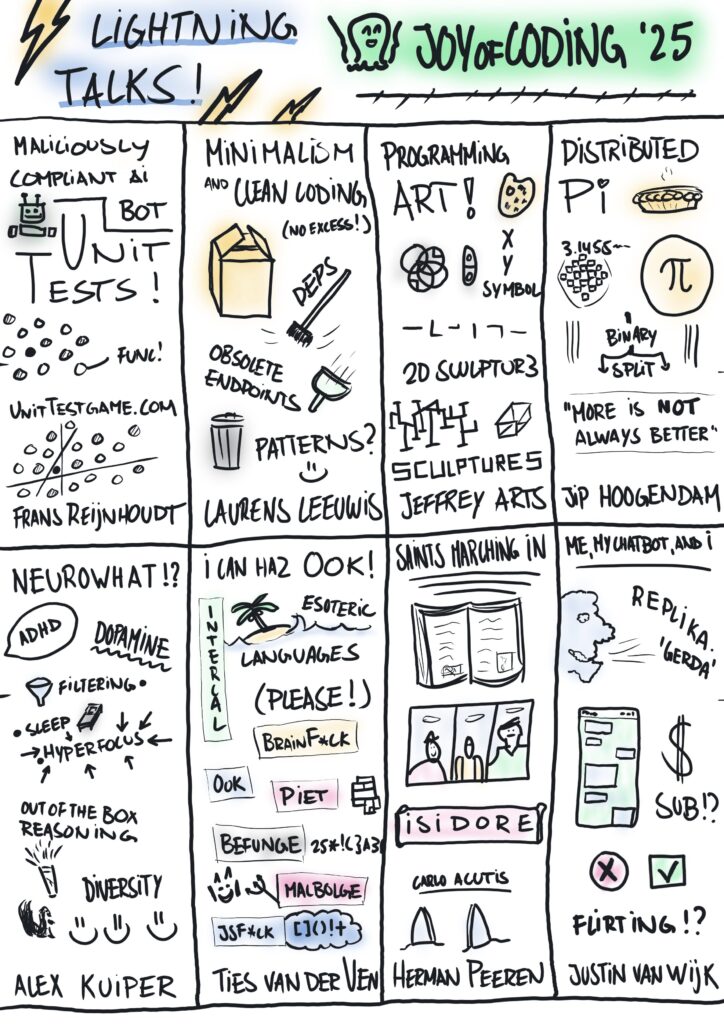 LIGHTNING
TALKS!
JOY OF CODING '25
MALICIOUSLY
COMPLIANT AI
BOT
UNIT
TESTS!
FUNC!
UNITTESTGAME.COM
FRANS REIJNHOUDT
MINIMALISM
AND CLEAN CODING
(NO EXCESS!)
DEPS
OBSOLETE
ENDPOINTS
PATTERNS?
LAURENS LEEUWIS
PROGRAMMING
ART!
X
Y
SYMBOL
2D SCULPTUR3
SCULPTURES
JEFFREY ARTS
DISTRIBUTED
Pi
3.1455~~
π
BINARY
SPLIT
"MORE IS NOT
ALWAYS BETTER"
JIP HOOGENDAM
NEUROWHAT!?
ADHD
DOPAMINE
FILTERING
SLEEP
HYPERFOCUS
OUT OF THE BOX
REASONING
DIVERSITY
ALEX KUIPER
I CAN HAZ OOK!
INTERCAL
ESOTERIC
LANGUAGES
(PLEASE!)
BRAINF*CK
OOK
PIET
BEFUNGE
MALBOLGE
JSF*CK
[]()!+
TIES VAN DER VEN
SAINTS MARCHING IN
ISIDORE
CARLO ACUTIS
HERMAN PEEREN
ME, MY CHATBOT, AND I
REPLIKA.
'GERDA'
$
SUB!?
X
FLIRTING!?
JUSTIN VAN WIJK